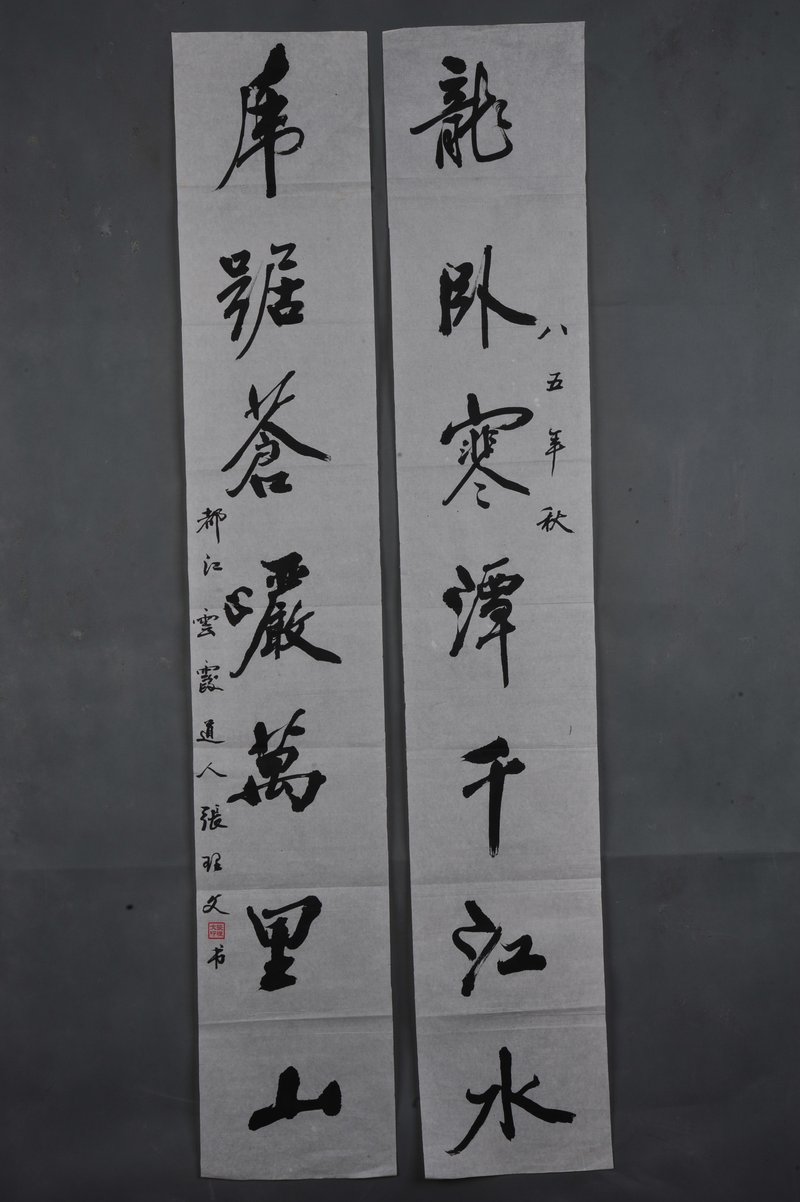 龍卧寒潭千江水
八五年秋
虎踞蒼巖萬里山
都江雲霞道人張理文书